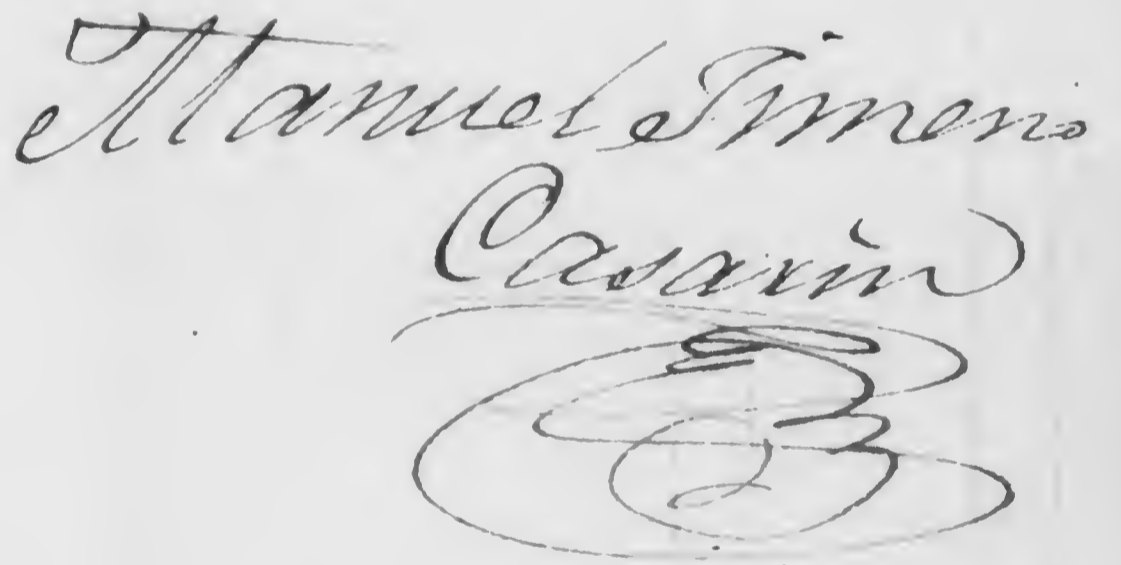 Manuel Jimeno
Casarin